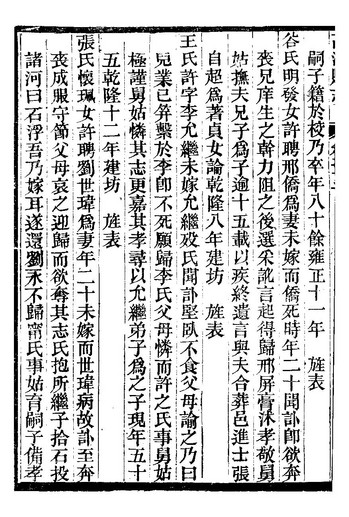 嗣子籍於校乃卒年八十餘雍正十一年　旌表
谷氏明發女許聘邢僑爲妻未嫁而僑死時年二十聞訃卽欲奔
喪兄庠生之幹力阻之後選采訛言起得歸邢屏膏沐孝敬舅
姑撫夫兄子爲子逾十五載以疾終遺言與夫合葬邑進士張
自超爲著貞女論乾隆八年建坊　旌表
王氏許字李允繼未嫁允繼歿氏聞訃堅臥不食父母諭之乃曰
兒業已笄繫於李卽不死願歸李氏父母憐而許之氏事舅姑
極謹舅姑憐其志更嘉其孝尋以允繼弟子爲之子現年五十
五乾隆十二年建坊　旌表
張氏懷珮女許聘劉世瑋爲妻年二十未嫁而世瑋病故訃至奔
喪成服守節父母哀之迎歸而欲奪其志氏抱所繼子拾石投
諸河曰石浮吾乃嫁耳遂還劉永不歸甯氏事姑育嗣子備孝